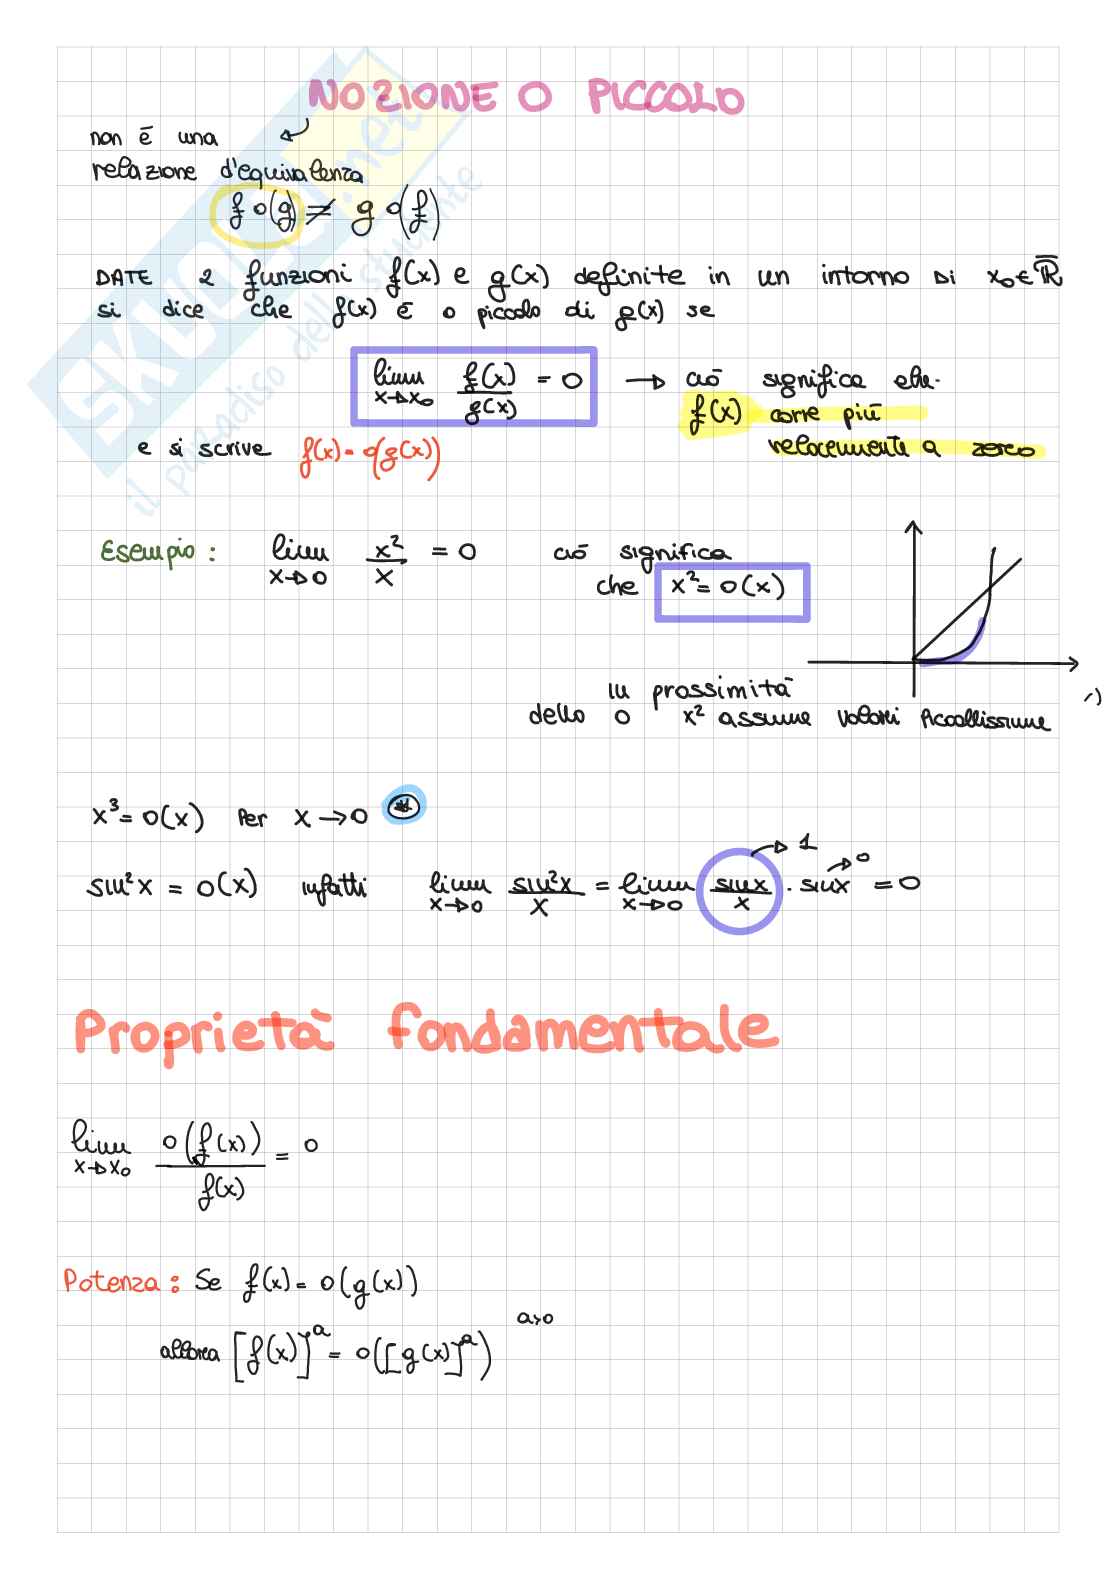 NOZIONE O PICCOLO
non è una
relazione d'equivalenza
f o(g) ≠ g o(f)
DATE 2 funzioni f(x) e g(x) definite in un intorno di x₀ ∈ R̅
si dice che f(x) è o piccolo di g(x) se
lim x→x₀ f(x)/g(x) = 0 → ciò significa che
f(x) corre più
velocemente a zero
e si scrive f(x) = o(g(x))
Esempio: lim x→0 x²/x = 0 ciò significa
che x² = o(x)
in prossimità
dello 0 x² assume valori piccolissime
x³ = o(x) per x → 0 *
sin²x = o(x) infatti lim x→0 sin²x/x = lim x→0 sinx/x · sinx = 0
→ 1
→ 0
Proprietà fondamentale
lim x→x₀ o(f(x))/f(x) = 0
Potenza: Se f(x) = o(g(x))
a>0
allora [f(x)]ᵃ = o([g(x)]ᵃ)
SKUOLA.net
il paradiso dello studente